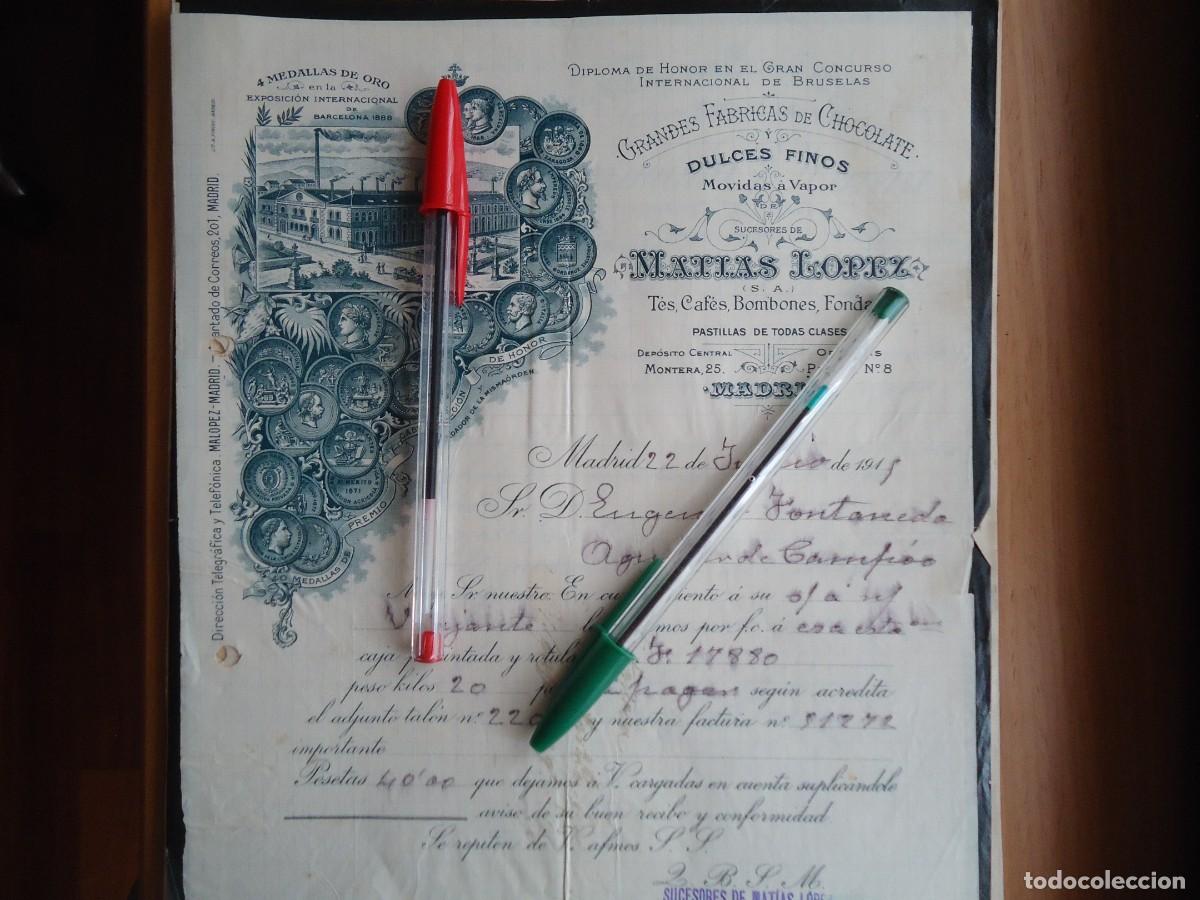 4 MEDALLAS DE ORO
en la
EXPOSICIÓN INTERNACIONAL
DE
BARCELONA 1888
DIPLOMA DE HONOR EN EL GRAN CONCURSO
INTERNACIONAL DE BRUSELAS
GRANDES FABRICAS DE CHOCOLATE
Y
DULCES FINOS
Movidas á Vapor
DE
SUCESORES DE
MATIAS LOPEZ
(S. A.)
Tés, Cafés, Bombones,
PASTILLAS DE TODAS CLASES
DEPÓSITO CENTRAL
MONTERA, 25.
Nº 8
Dirección Telegráfica y Telefónica. MALOPEZ-MADRID. - de Correos, 201, MADRID.
MEDALLAS DE PREMIO
DE HONOR
DE LA MISMA ORDEN
1871
Madrid 22 de de 1915
Sr. D. Fontaneda
de Campóo
Sr nuestro: En á su s/ á n/
mos por f.c. á esa
caja y 17880
peso kilos 20 pagar según acredita
el adjunto talón nº y nuestra factura nº 51272
importante
Pesetas 40'00 que dejamos á V. cargadas en cuenta suplicándole
aviso de su buen recibo y conformidad
Se repiten de V. afmos S. S.
Q. B. S. M.
SUCESORES DE MATÍAS
todocoleccion